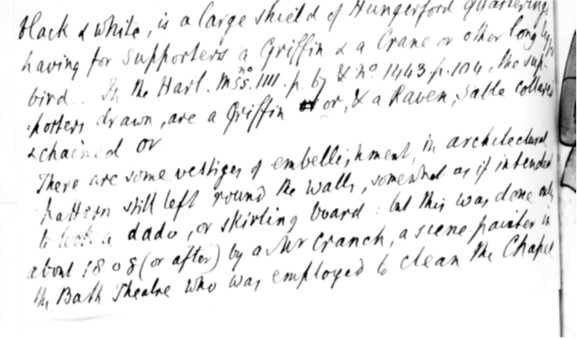 black & white, is a large shield of Hungerford Quartering
having for supporters a Griffin & a Crane or other long
bird. In the Harl. Mss. no 1111. p. by & no 1443. p. 104, the sup-
-porters drawn, are a Griffin or, & a Raven, Sable collared
& chained or
There are some vestiges of embellishment, in architectural
pattern still left round the walls, somewhat as if intended
to look a dado, or skirting board: but this was done only
about 1808 (or after) by a Mr Cranch, a scene painter in
the Bath Theatre who was employed to clean the Chapel